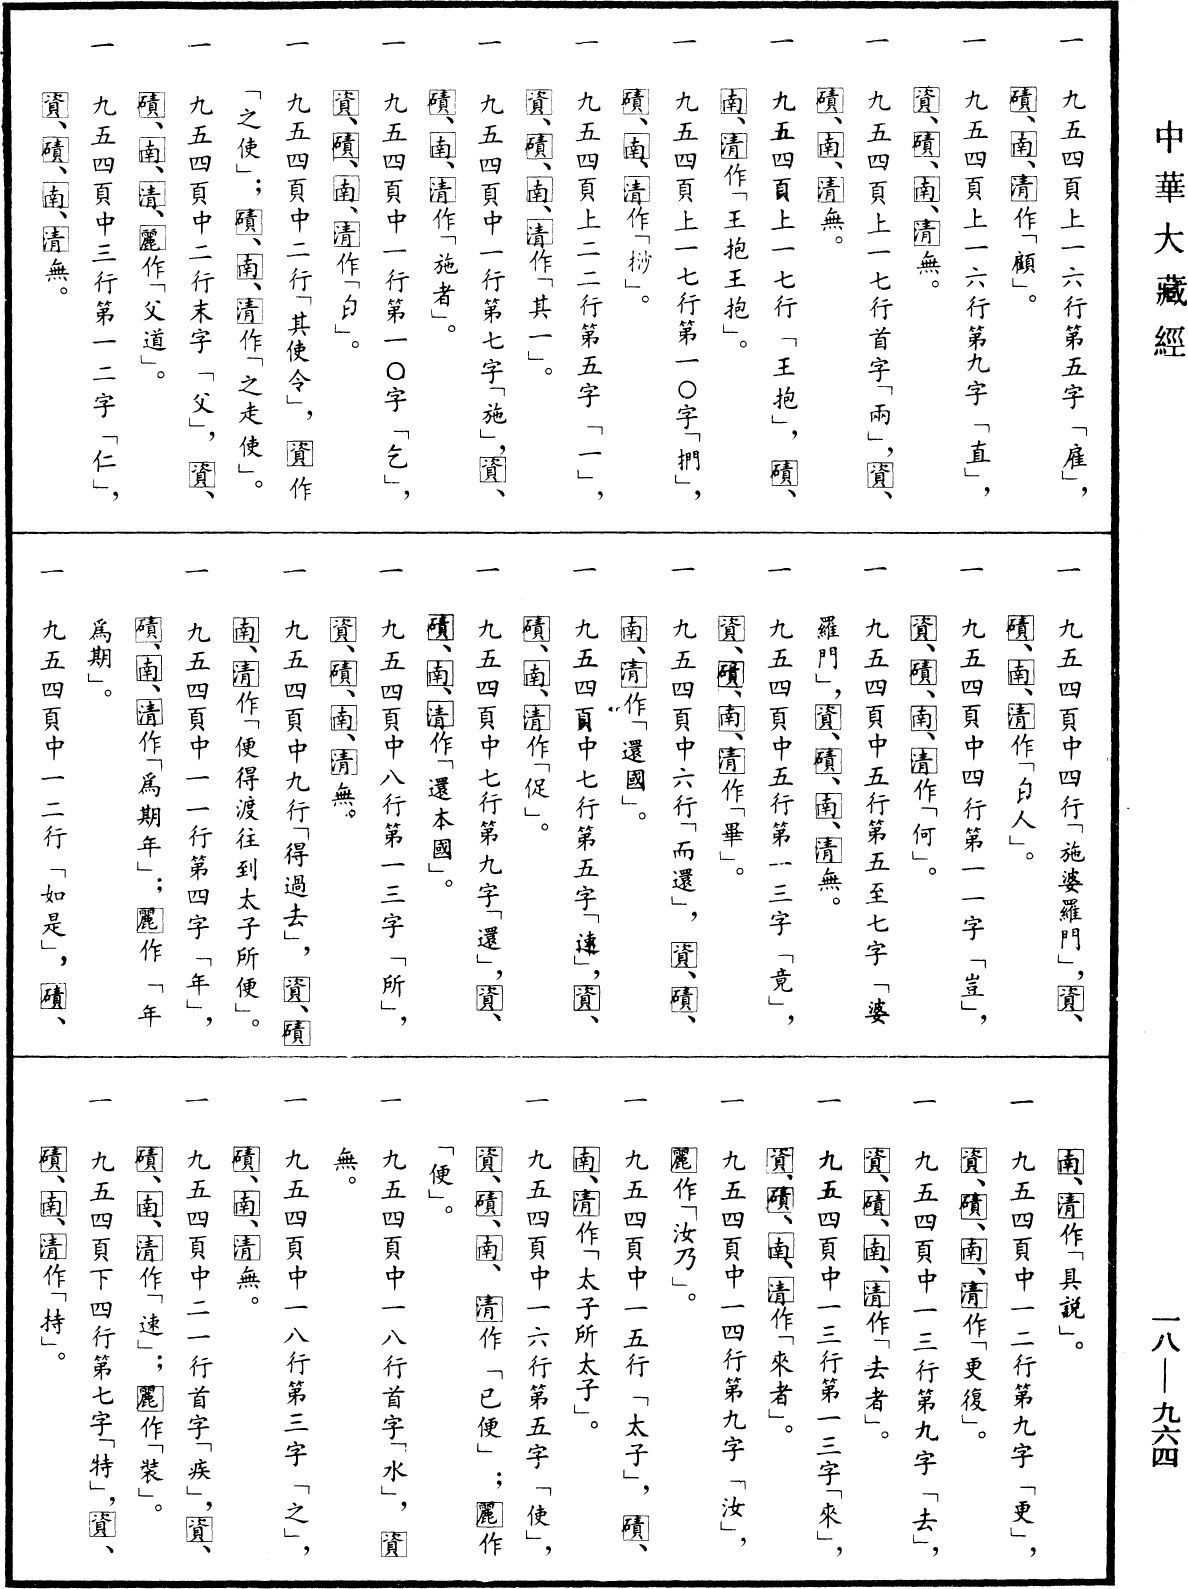 中華大藏經
一八—九六四
一 九五四頁上一六行第五字「雇」，
磧、南、清作「顧」。
一 九五四頁上一六行第九字「直」，
資、磧、南、清無。
一 九五四頁上一七行首字「兩」，資、
磧、南、清無。
一 九五四頁上一七行「王抱」，磧、
南、清作「王抱王抱」。
一 九五四頁上一七行第一〇字「捫」，
磧、南、清作「㧚」。
一 九五四頁上二二行第五字「一」，
資、磧、南、清作「其一」。
一 九五四頁中一行第七字「施」，資、
磧、南、清作「施者」。
一 九五四頁中一行第一〇字「乞」，
資、磧、南、清作「白」。
一 九五四頁中二行「其使令」，資作
「之使」；磧、南、清作「之走使」。
一 九五四頁中二行末字「父」，資、
磧、南、清、麗作「父道」。
一 九五四頁中三行第一二字「仁」，
資、磧、南、清無。
一 九五四頁中四行「施婆羅門」，資、
磧、南、清作「白人」。
一 九五四頁中四行第一一字「豈」，
資、磧、南、清作「何」。
一 九五四頁中五行第五至七字「婆
羅門」，資、磧、南、清無。
一 九五四頁中五行第一三字「竟」，
資、磧、南、清作「畢」。
一 九五四頁中六行「而還」，資、磧、
南、清作「還國」。
一 九五四頁中七行第五字「速」，資、
磧、南、清作「促」。
一 九五四頁中七行第九字「還」，資、
磧、南、清作「還本國」。
一 九五四頁中八行第一三字「所」，
資、磧、南、清無。
一 九五四頁中九行「得過去」，資、磧
南、清作「便得渡往到太子所便」。
一 九五四頁中一一行第四字「年」，
磧、南、清作「爲期年」；麗作「年
爲期」。
一 九五四頁中一二行「如是」，磧、
南、清作「具説」。
一 九五四頁中一二行第九字「更」，
資、磧、南、清作「更復」。
一 九五四頁中一三行第九字「去」，
資、磧、南、清作「去者」。
一 九五四頁中一三行第一三字「來」，
資、磧、南、清作「來者」。
一 九五四頁中一四行第九字「汝」，
麗作「汝乃」。
一 九五四頁中一五行「太子」，磧、
南、清作「太子所太子」。
一 九五四頁中一六行第五字「使」，
資、磧、南、清作「已便」；麗作
「便」。
一 九五四頁中一八行首字「水」，資
無。
一 九五四頁中一八行第三字「之」，
磧、南、清無。
一 九五四頁中二一行首字「疾」，資、
磧、南、清作「速」；麗作「裝」。
一 九五四頁下四行第七字「特」，資、
磧、南、清作「持」。